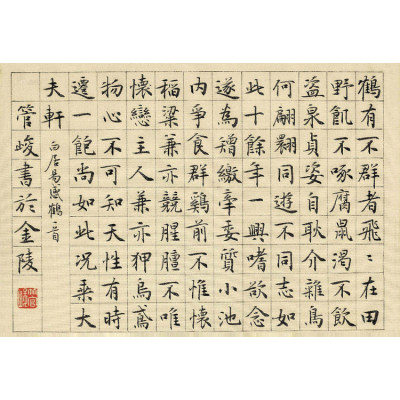 鶴有不群者飛〻在田
野飢不啄腐鼠渴不飲
盜泉貞姿自耿介雜鳥
何翩翾同遊不同志如
此十餘年一興嗜欲念
遂為矰繳牽委質小池
內爭食群鷄前不惟懷
稻粱兼亦競腥膻不唯
懷戀主人兼亦狎烏鳶
物心不可知天性有時
遷一飽尚如此况乘大
夫軒 白居易感鶴一首
管峻書於金陵